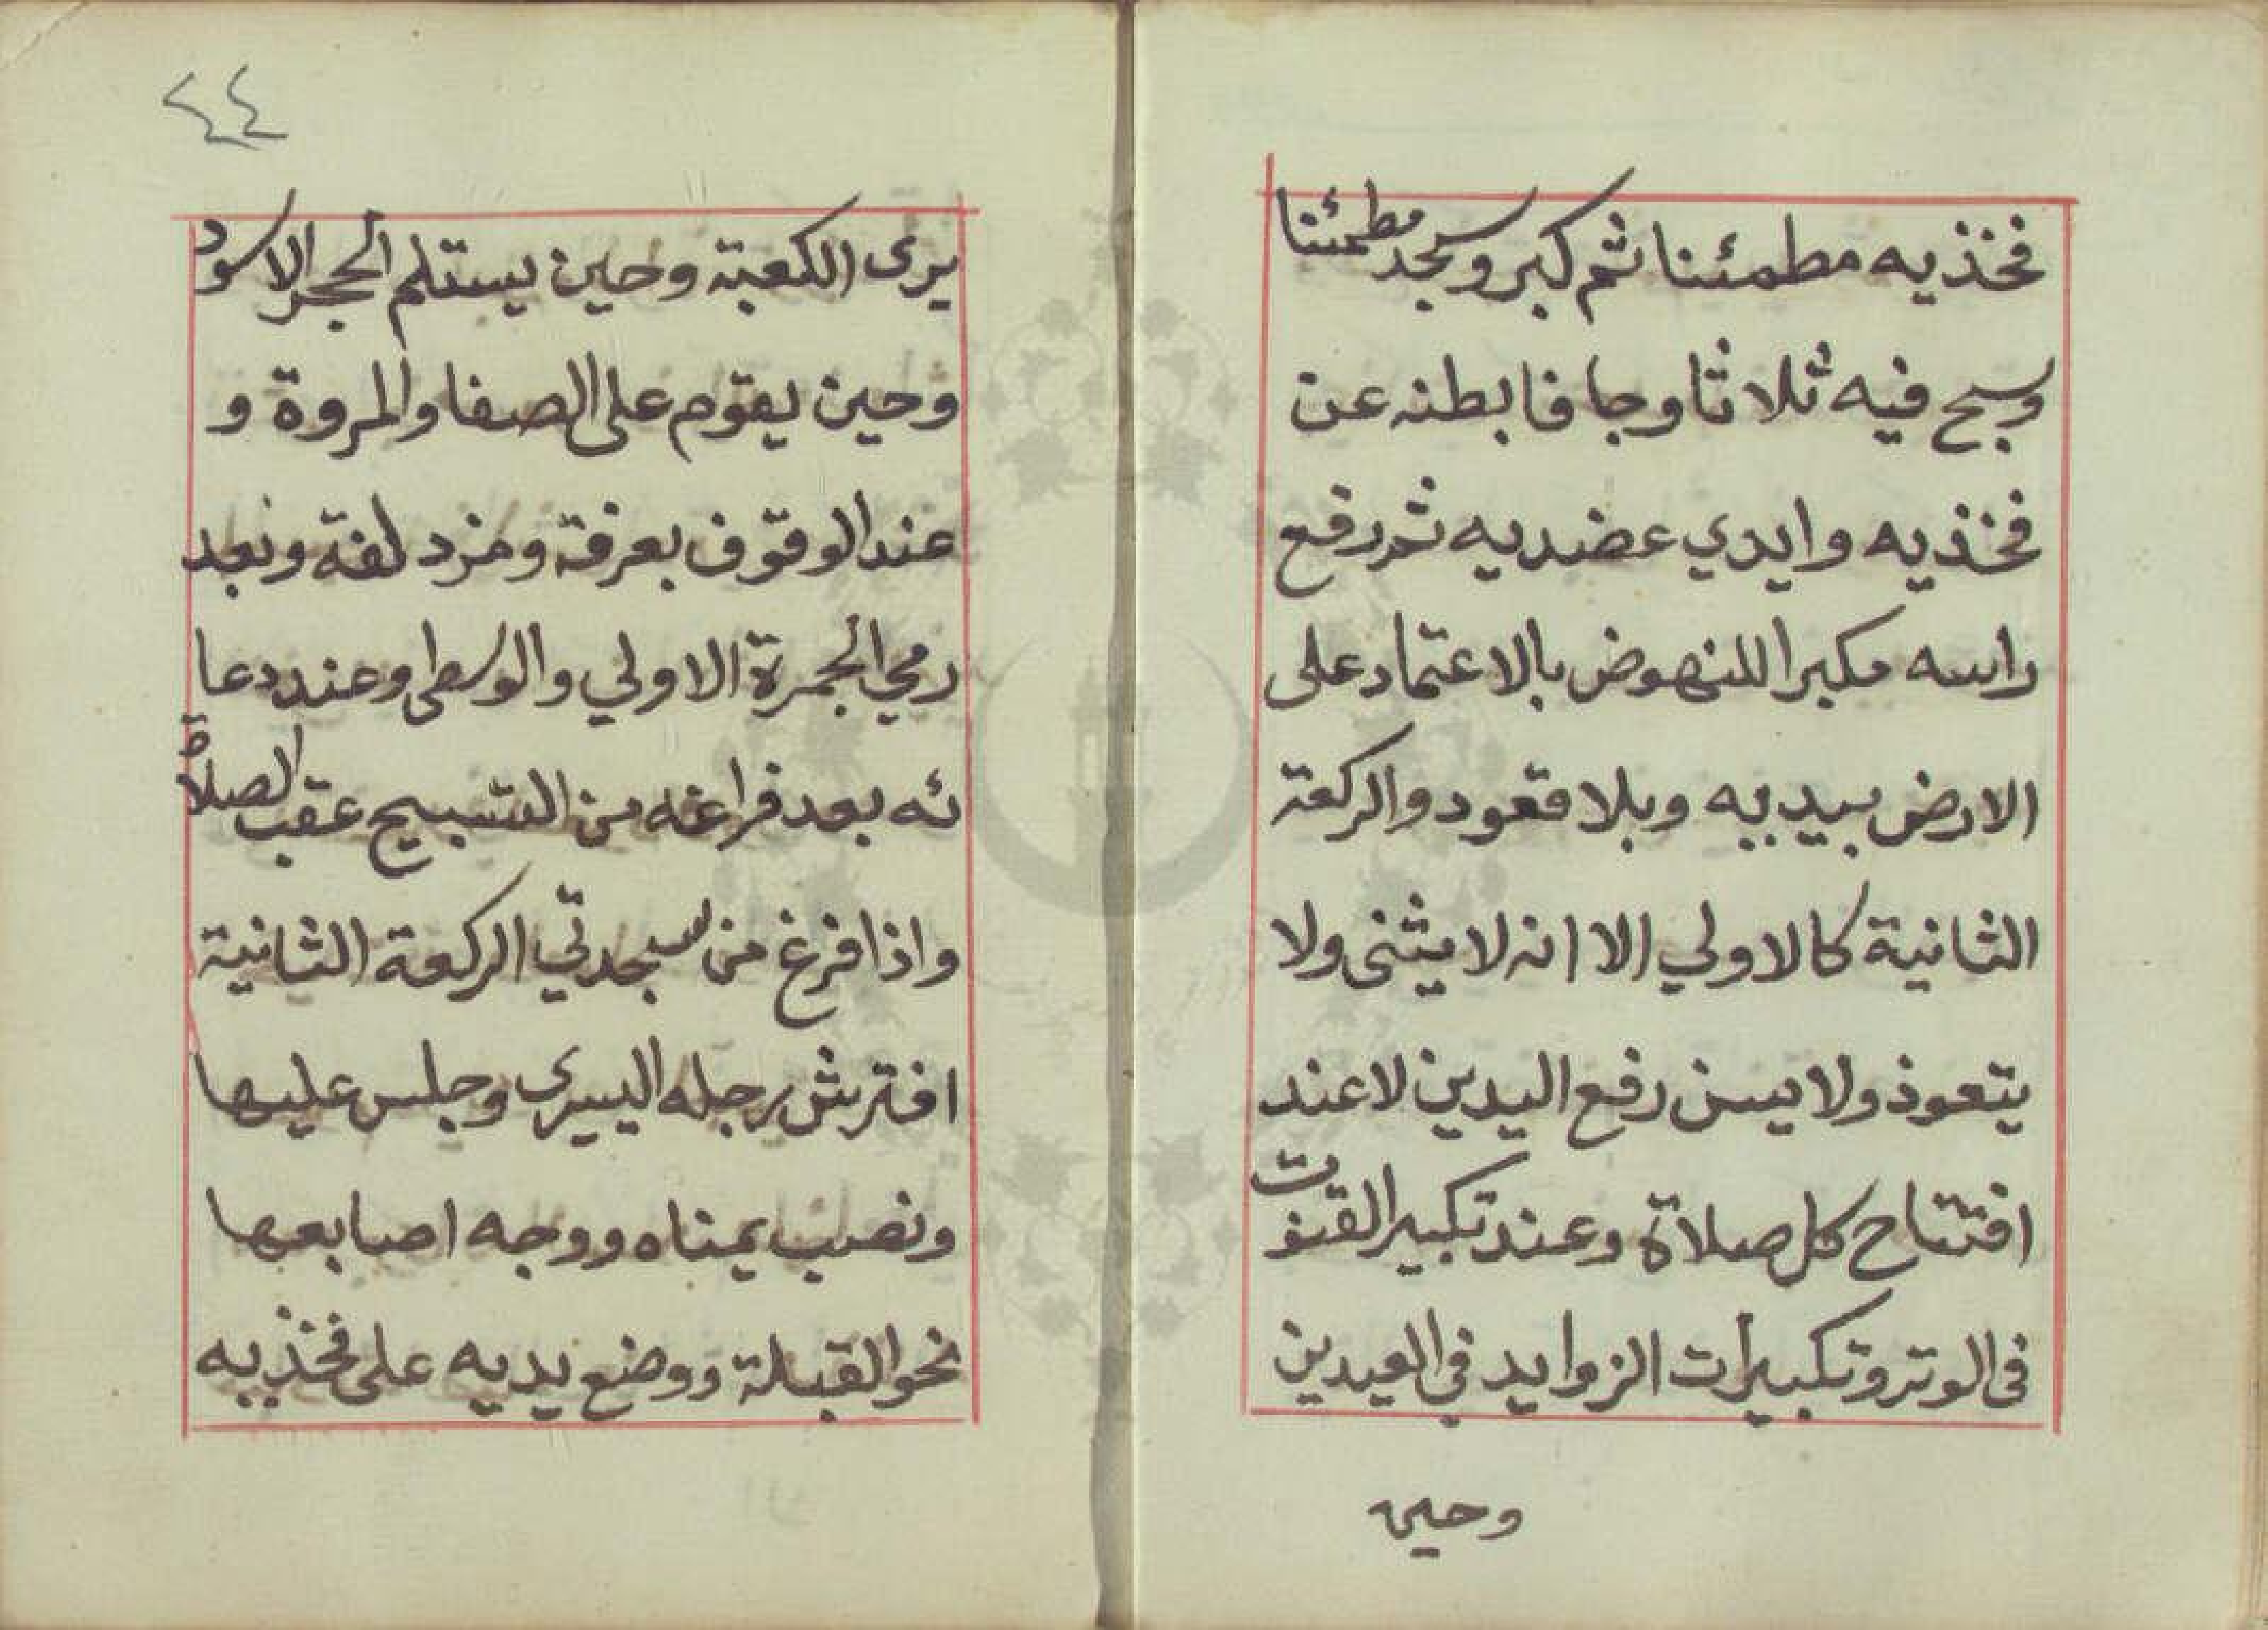 فخذيه مطمئنا ثم كبر وسجد مطمئنا
وسبح فيه ثلاثا وجافا بطنه عن
فخذيه وايدي عضديه ثم رفع
راسه مكبرا للنهوض بالاعتماد على
الارض بيديه وبلا قعود والركعة
الثانية كالاولي الا انه لا يثنى ولا
يتعوذ ولا يسن رفع اليدين لا عند
افتتاح كل صلاة وعند تكبير القنوت
فى الوتر وتكبيرات الزوايد في العيدين
وحين
٤٤
يرى الكعبة وحين يستلم الحجر الاسود
وحين يقوم على الصفا والمروة و
عند الوقوف بعرفة ومزدلفة وبعد
رمي الجمرة الاولي والوسطى وعند دعا
ئه بعد فراغه من التسبيح عقب الصلاة
واذا فرغ من سجدتي الركعة الثانية
افترش رجله اليسرى وجلس عليها
ونصب يمناه ووجه اصابعها
نحو القبلة ووضع يديه على فخذيه